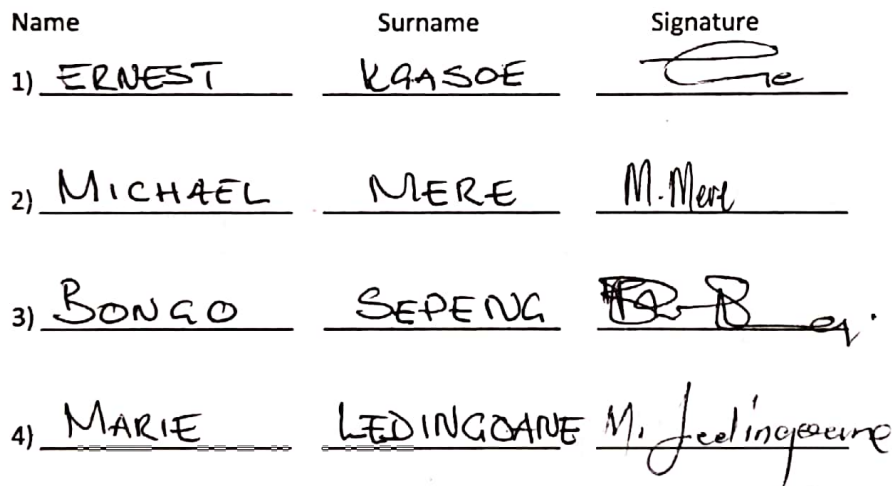 Name Surname Signature
1) ERNEST KGASOE
2) MICHAEL MERE M. Mere
3) BONGO SEPENG
4) MARIE LEDINGOANE M. Ledingoane